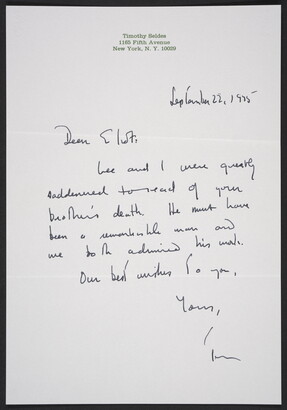 Timothy Seldes
1165 Fifth Avenue
New York, N. Y. 10029
September 22, 1975
Dear Eliot,
Lee and I were greatly
saddened to read of your
brother's death. He must have
been a remarkable man and
we both admired his work.
Our best wishes to you,
Yours,
Tim